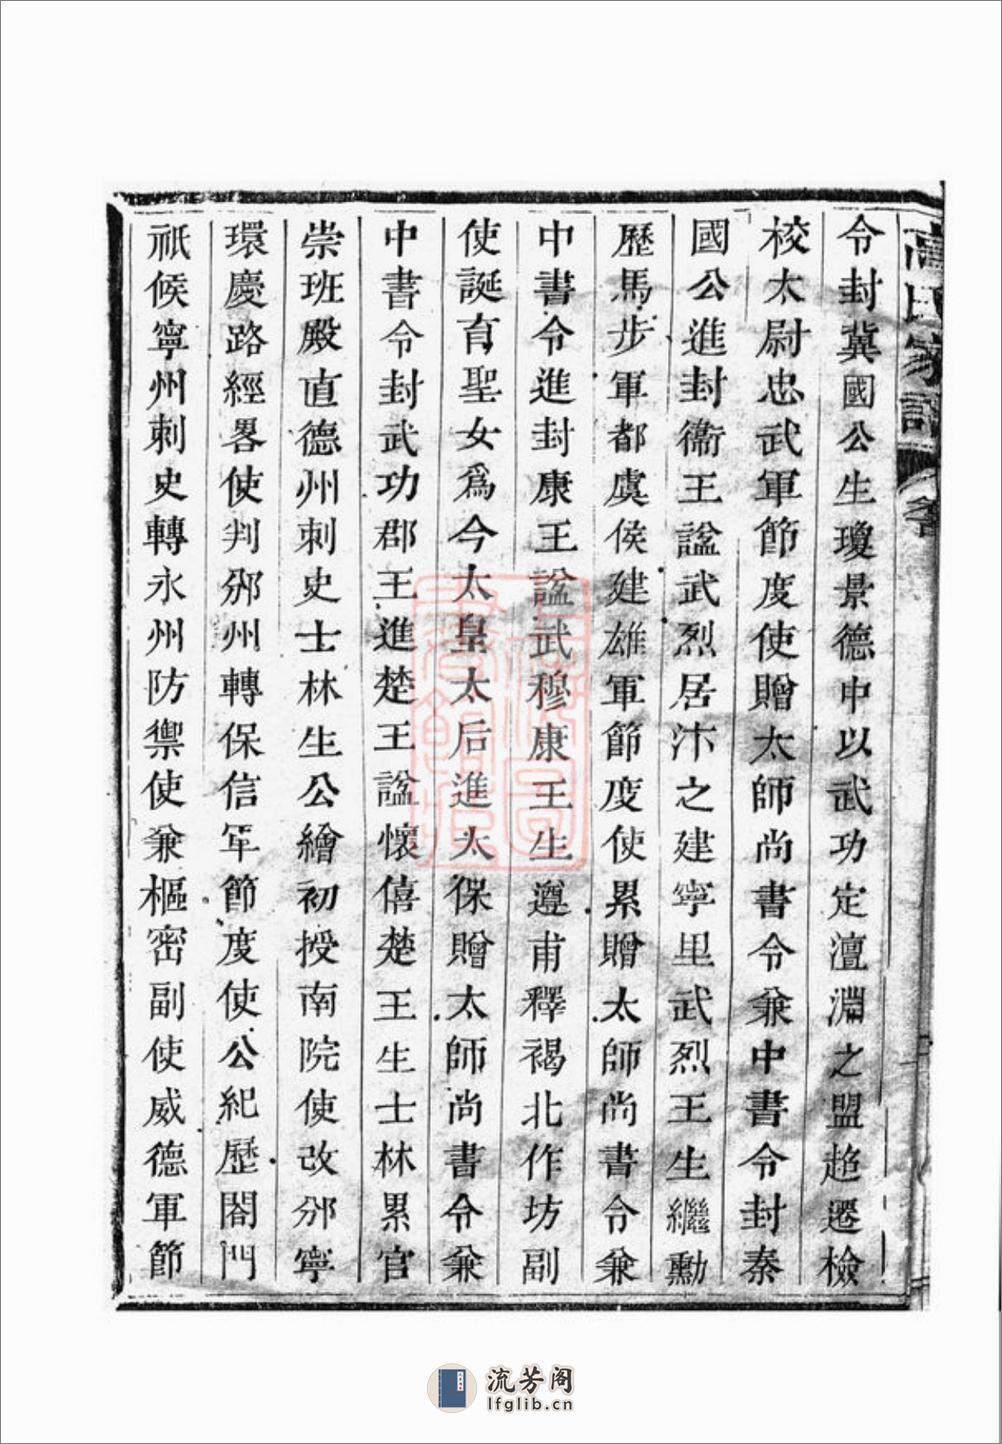 高氏家譜
令封冀國公生瓊景德中以武功定澶淵之盟趋遷檢
校太尉忠武軍節度使贈太師尚書令兼中書令封秦
國公進封衞王諡武烈居汴之建寧里武烈王生繼勳
歷馬步軍都虞侯建雄軍節度使累贈太師尚書令兼
中書令進封康王諡武穆康王生遵甫釋褐北作坊副
使誕育聖女爲今太皇太后進太保贈太師尚書令兼
中書令封武功郡王進楚王諡懷僖楚王生士林累官
崇班殿直德州刺史士林生公繪初授南院使改邠寧
環慶路經畧使判邠州轉保信軍節度使公紀歷閤門
祇候寧州刺史轉永州防禦使兼樞密副使威德軍節
流芳阁
lfglib.cn